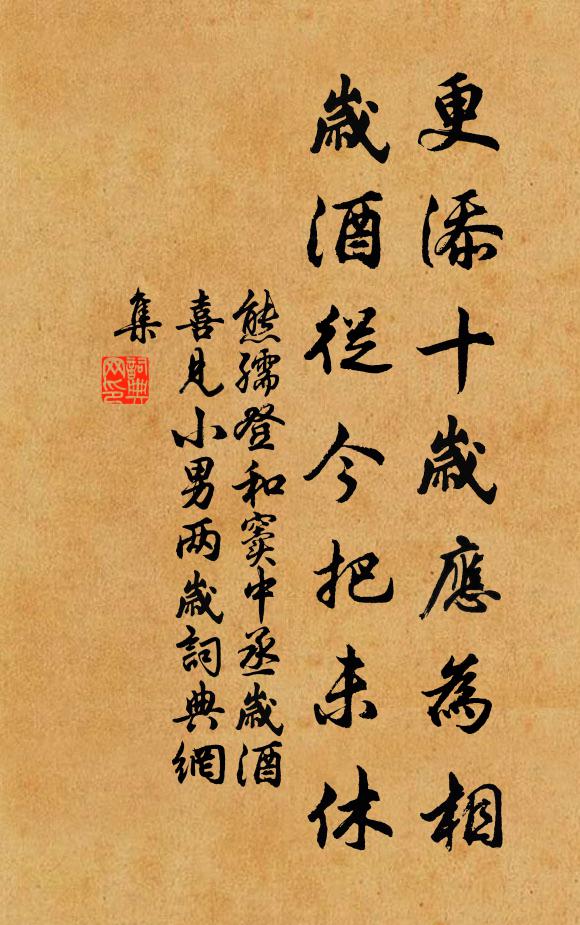 更添十歲應為相
歲酒從今把未休
熊孺登和竇中丞歲酒
喜見小男两歲詞典網
集
詞典网印